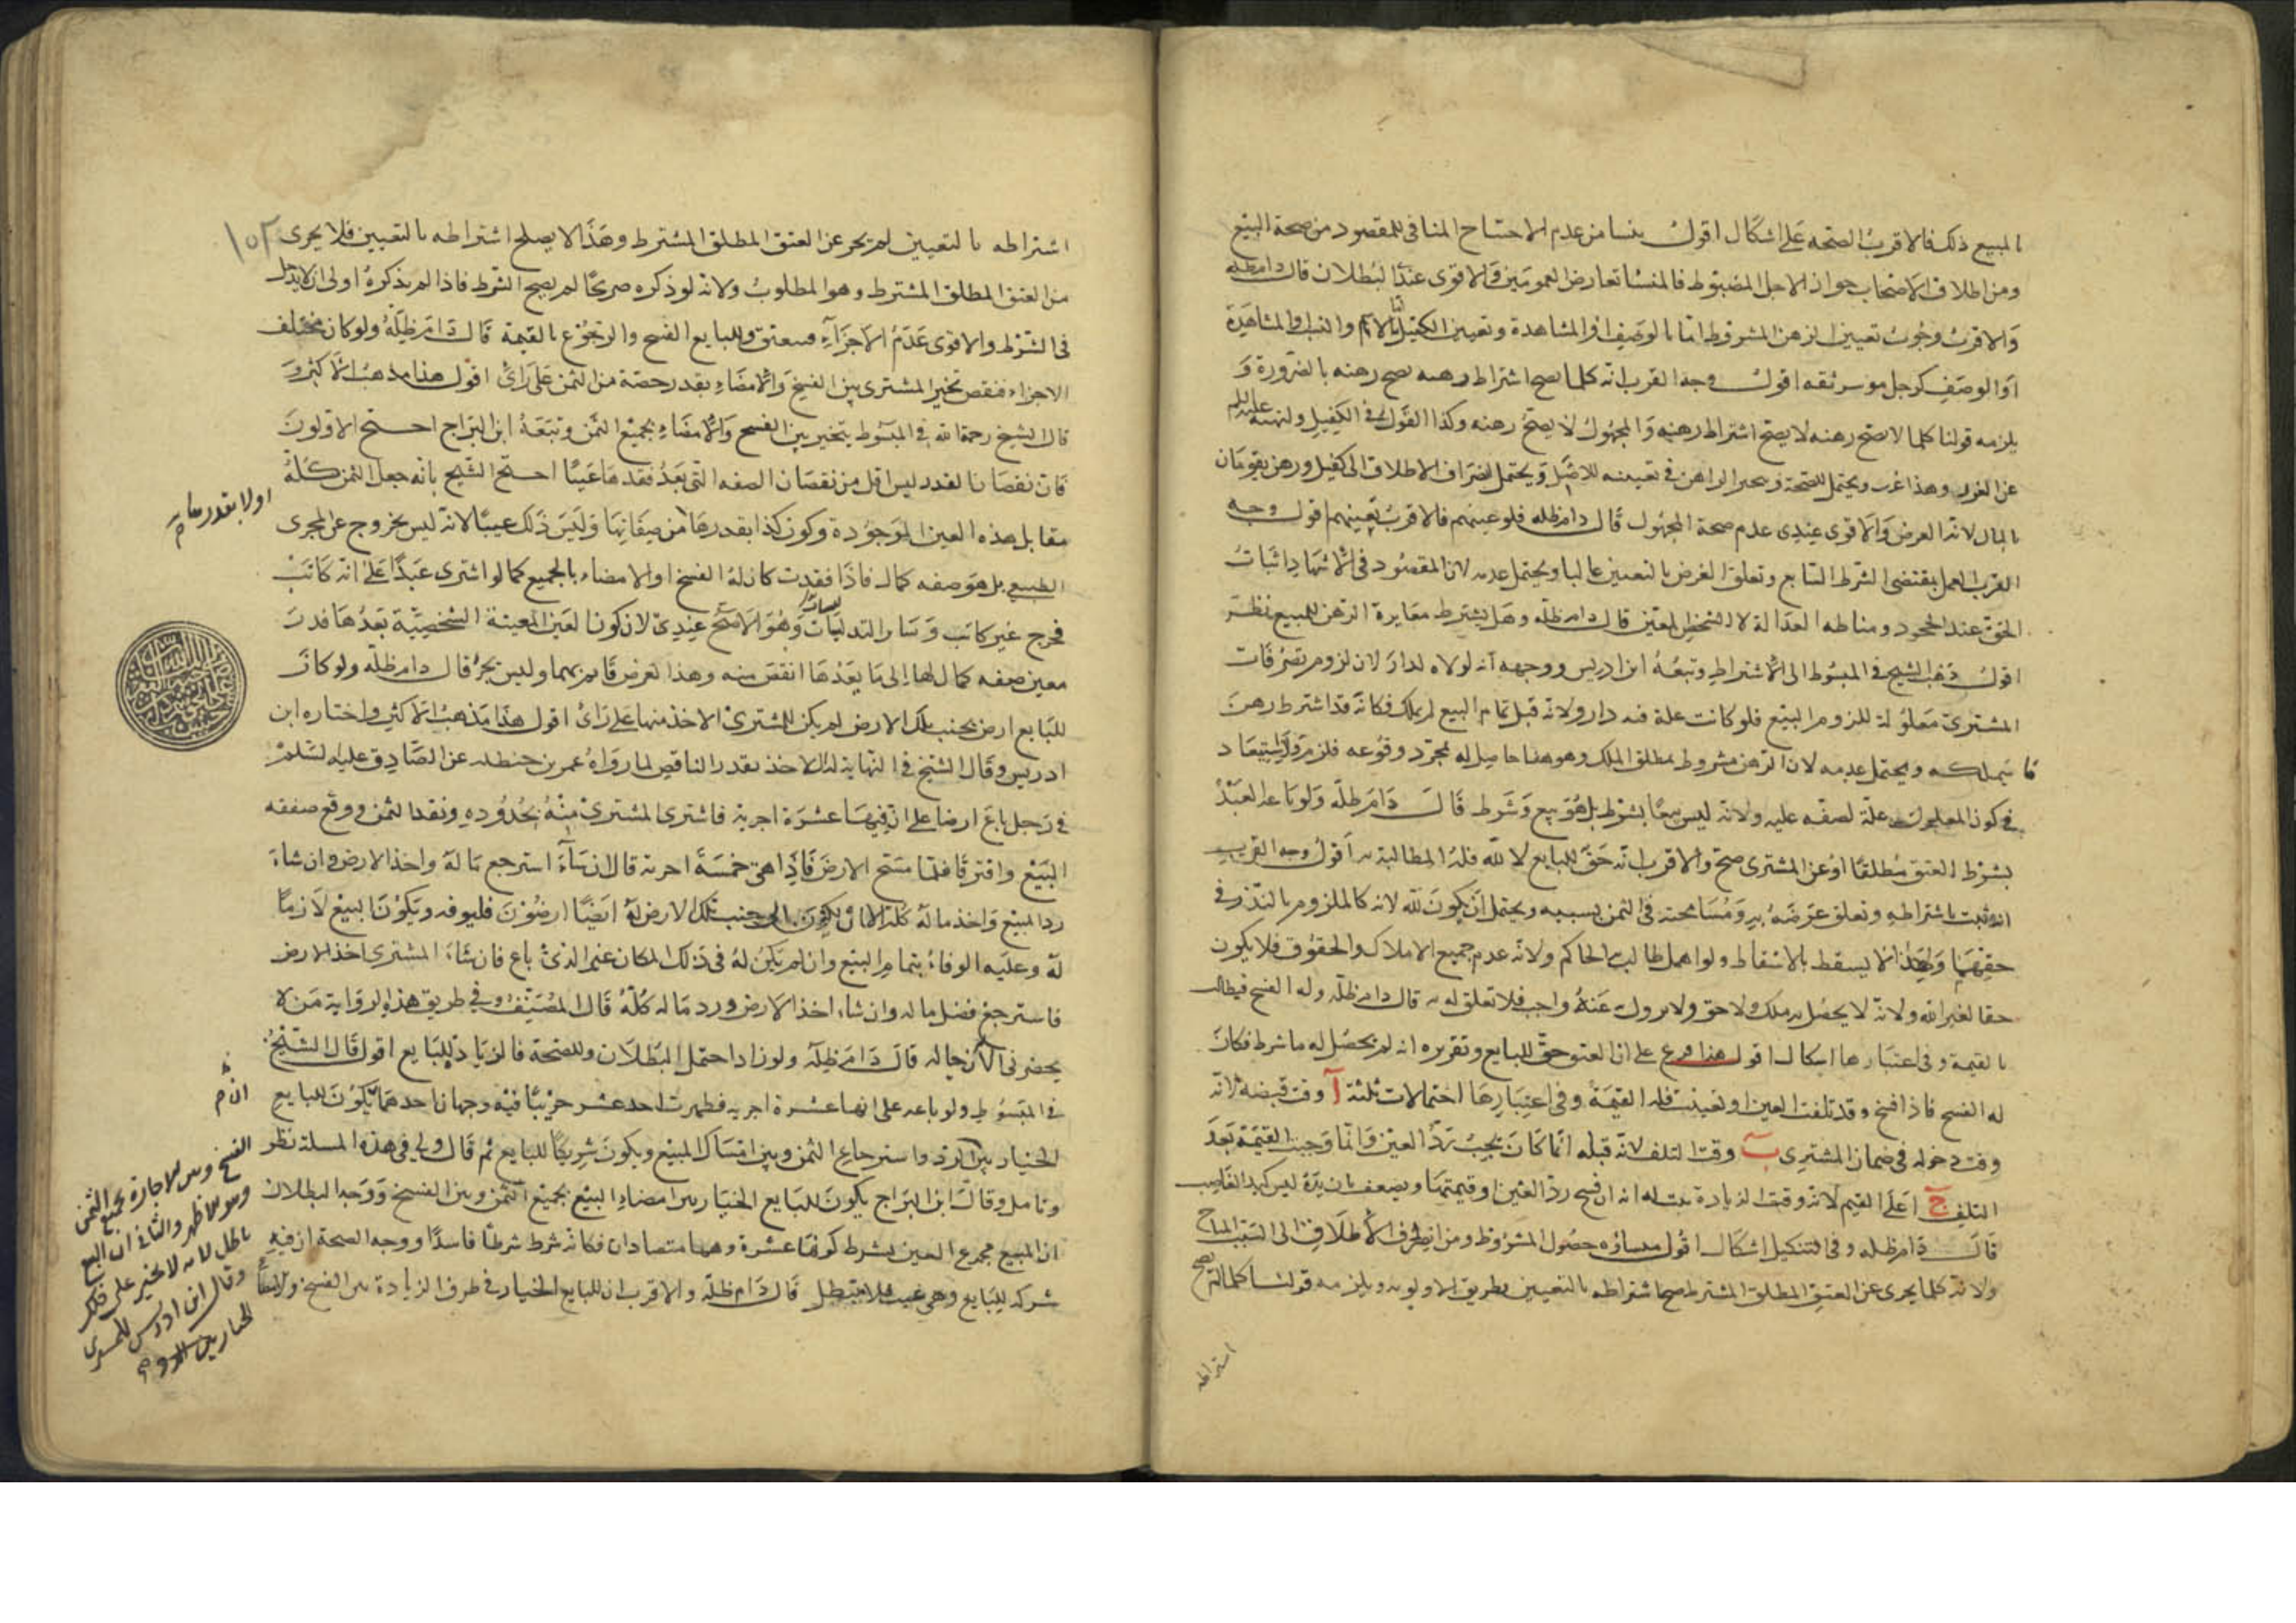 المبيع ذلك فالاقرب الصحه على اشكال اقول ينشا من عدم الاحتياج المنافى للمقصود من صحة البيع
ومن اطلاق الاصحاب جواز الاجل المضبوط فالمنشا تعارض العمومين والاقوى عندى البطلان قال دام ظله
والاقرب وجوب تعيين الرهن المشروط اما بالوصف او المشاهدة وتعيين الكفيل اما بالاسم والنسب او المشاهدة
او الوصف كرجل موسر ثقه اقول وجه القرب انه كلما يصح اشتراط رهنه يصح رهنه بالضرورة و
يلزمه قولنا كلما لا يصح رهنه لا يصح اشتراط رهنه والمجهول لا يصح رهنه وكذا القول فى الكفيل ولنهيه عليه السلم
عن الغرر وهذا غرر ويحتمل الصحة ويحتمل انصراف الاطلاق الى كفيل ورهن يقومان
بالمال لانه الغرض والاقوى عندى عدم صحة المجهول قال دام ظله فلو عينهم فالاقرب تعينهم اقول وجه
القرب العمل بمقتضى الشرط السايع وتعلق الغرض بالتعيين غالبا ويحتمل عدمه لان المقصود فى الاشهاد اثبات
الحق عند الجحود ومناطه العدالة لا الشخص المعين قال دام ظله وهل يشترط مغايرة الرهن للمبيع نظر
اقول ذهب الشيخ فى المبسوط الى الاشتراط وتبعه ابن ادريس ووجهه انه لولاه لدار لان لزوم تصرفات
المشترى معلولة للزوم البيع فلو كانت علة فيه دار ولانه قبل تمام البيع لم يملك فكانه قد اشترط رهن
ما يملكه ويحتمل عدمه لان الرهن مشروط بمطلق الملك وهو هنا حاصل له بمجرد وقوعه فلزم ولا استبعاد
فى كون المعلول علة لصفه عليه ولانه ليس بيعا بشرط بل هو بيع وشرط قال دام ظله ولو باعه العبد
بشرط العتق مطلقا او عن المشترى صح والاقرب انه حق للبايع لا لله فله المطالبة به اقول وجه القرب
انه ثبت باشتراطه وتعلق غرضه به ومسامحته فى الثمن بسببه ويحتمل ان يكون لله لانه كالملزوم بالنذر فى
حقهما ولهذا لا يسقط بالاسقاط ولو اهمل طالب الحاكم ولانه عدم جميع الاملاك والحقوق فلا يكون
حقا لغير الله ولانه لا يحصل به ملك ولا حق ولا يزول عنه واجب فلا تعلق له به قال دام ظله وله الفسخ فيطالب
بالقيمة وفى اعتبارها اشكال اقول هذا فرع على ان العتق حق للبايع وتقريره انه لم يحصل له ما شرط فكان
له الفسخ فاذا فسخ وقد تلفت العين او تعيبت فله القيمة وفى اعتبارها احتمالات ثلثة آ وقت قبضه لانه
وقت دخوله فى ضمان المشترى ب وقت التلف لانه قبله انما كان يجب رد العين وانما وجبت القيمة بعد
التلف ج اعلى القيم لانه وقت الزيادة ثبت له انه ان فسخ رد العين او قيمتها ويضعف بان يده ليس كيد الغاصب
قال دام ظله وفى التنكيل اشكال اقول منشاؤه حصول المشروط ومن انصراف الاطلاق الى السبب المباح
ولانه كلما يجرى عن العتق المطلق المشترط صح اشتراطه بالتعيين بطريق الاولويه ويلزمه قولنا كلما لم يصح
اشتراطه
اشتراطه بالتعيين لم يجز عن العتق المطلق المشترط وهذا لا يصلح اشتراطه بالتعيين فلا يجرى
١٥٢
من العتق المطلق المشترط وهو المطلوب ولانه لو ذكره صريحا لم يصح الشرط فاذا لم يذكره اولى ان لا يدخل
فى الشرط والاقوى عدم الاجزاء فيعتق وللبايع الفسخ والرجوع بالقيمة قال دام ظله ولو كان مختلف
الاجزاء فنقص تخير المشترى بين الفسخ والامضاء بقدر حصة من الثمن على راى اقول هذا مذهب الاكثر و
قال الشيخ رحمة الله فى المبسوط يتخير بين الفسخ والامضاء بجميع الثمن وتبعه ابن البراج احتج الاولون
فان نقصان القدر ليس اقل من نقصان الصفه التى يعد فقدها عيبا احتج الشيخ بانه جعل الثمن كله
اولا بقدرها
مقابل هذه العين الموجودة وكون كذا بقدرها من صفاتها وليس ذلك عيبا لانه ليس بخروج عن المجرى
الطبيعى بل هو صفه كمال فاذا فقدت كان له الفسخ او الامضاء بالجميع كما لو اشترى عبدا على انه كاتب
فخرج غير كاتب وسائر التدليسات وهو الاصح عندى لان كون العين المعينة الشخصية بعدها قدر
معين صفه كمال لها الى ما بعدها انقص منه وهذا لغرض قايم بهما وليس بجزء قال دام ظله ولو كان
للبايع ارض بجنب تلك الارض لم يكن للمشترى الاخذ منها على راى اقول هذا مذهب الاكثر واختاره ابن
ادريس وقال الشيخ فى النهاية له الاخذ بقدر الناقص لما رواه عمر بن حنطله عن الصادق عليه السلم
فى رجل باع ارضا على ان فيها عشرة اجربة فاشترى المشترى منه بحدوده ونقد الثمن ووقع صفقه
البيع وافترقا فلما مسح الارض فاذا هى خمسة اجربة قال ان شاء استرجع ماله واخذ الارض وان شاء
رد المبيع واخذ ماله كله الا ان يكون الى جنب تلك الارض له ايضا ارضون فليوفه ويكون البيع لازما
له وعليه الوفاء بتمام البيع وان لم يكن له فى ذلك المكان غير الذى باع فان شاء المشترى اخذ الارض
فاسترجع فضل ماله وان شاء اخذ الارض ورد ماله كله قال المصنف وفى طريق هذه الرواية من لا
يحضرنى الآن حاله قال دام ظله ولو زاد احتمل البطلان وللصحة فالزيادة للبايع اقول قال الشيخ
فى المبسوط ولو باعه على انها عشرة اجربه فظهرت احد عشر جريبا فيه وجهان احدهما يكون للبايع
الخيار بين الرد واسترجاع الثمن وبين امساك المبيع ويكون شريكا للبايع ثم قال ولى فى هذه المسئلة نظر
وتامل وقال ابن البراج يكون للبايع الخيار بين امضاء البيع بجميع الثمن وبين الفسخ ووجه البطلان
ان المبيع مجموع العين بشرط كونها عشرة وهما متضادان فكانه شرط شرطا فاسدا ووجه الصحة ان فيه
شركه للبايع وهى عيب فلا يبطل قال دام ظله والاقرب ان للبايع الخيار فى طرف الزيادة بين الفسخ والامضاء
الفسخ وبين الاجازة بجميع الثمن
وهو الاظهر والثانى ان البيع
باطل لانه لا يخير على ذلك
وقال ابن ادريس للمشترى
الخيار بين الرد